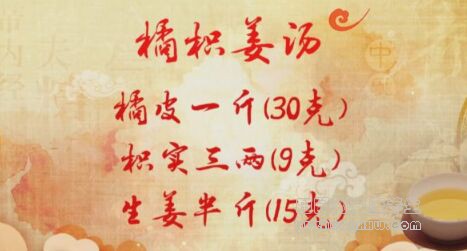 橘枳姜汤
橘皮一斤(30克)
枳实三两(9克)
生姜半斤(15克)
中